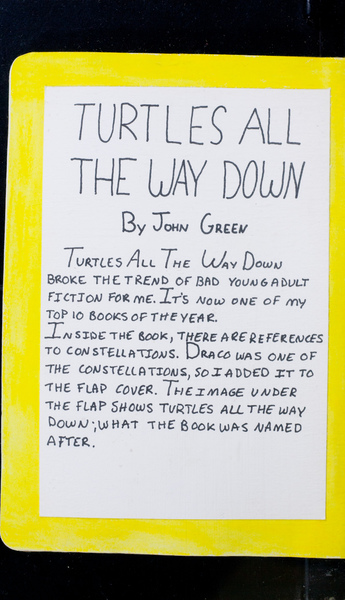 TURTLES ALL
THE WAY DOWN
BY JOHN GREEN
TURTLES ALL THE WAY DOWN
BROKE THE TREND OF BAD YOUNG ADULT
FICTION FOR ME. IT'S NOW ONE OF MY
TOP 10 BOOKS OF THE YEAR.
INSIDE THE BOOK, THERE ARE REFERENCES
TO CONSTELLATIONS. DRACO WAS ONE OF
THE CONSTELLATIONS, SO I ADDED IT TO
THE FLAP COVER. THE IMAGE UNDER
THE FLAP SHOWS TURTLES ALL THE WAY
DOWN; WHAT THE BOOK WAS NAMED
AFTER.